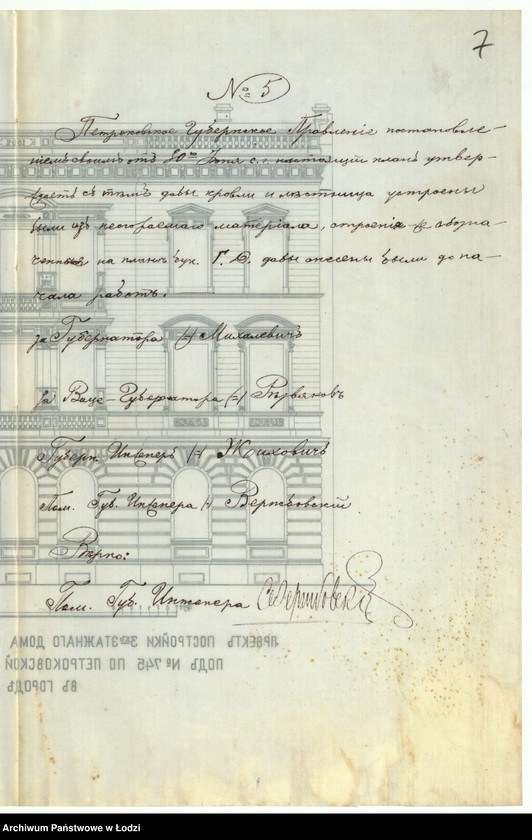 7
№ 5
Петроковское Губернское Правленіе постановле-
ніемъ своимъ отъ 30го Іюня с.г. настоящій планъ утвер-
съ тѣмъ дабы кровли и лѣстница устроены
были изъ несгораемаго матеріала, строенія обозна-
ченныя на планѣ бук. Г. Ю. дабы снесены были до на-
чала работъ.
за Губернатора (-) Михалевичъ
за Вице-Губернатора (-)
Губерн. Инженеръ (-)
Пом. Губ. Инженера (-)
Вѣрно:
Пом. Губ. Инженера
ПРОЕКТЪ ПОСТРОЙКИ 3хъ ЭТАЖНАГО ДОМА
ПОДЪ № 745 ПО ПЕТРОКОВСКОЙ
ВЪ ГОРОДѢ
Archiwum Państwowe w Łodzi